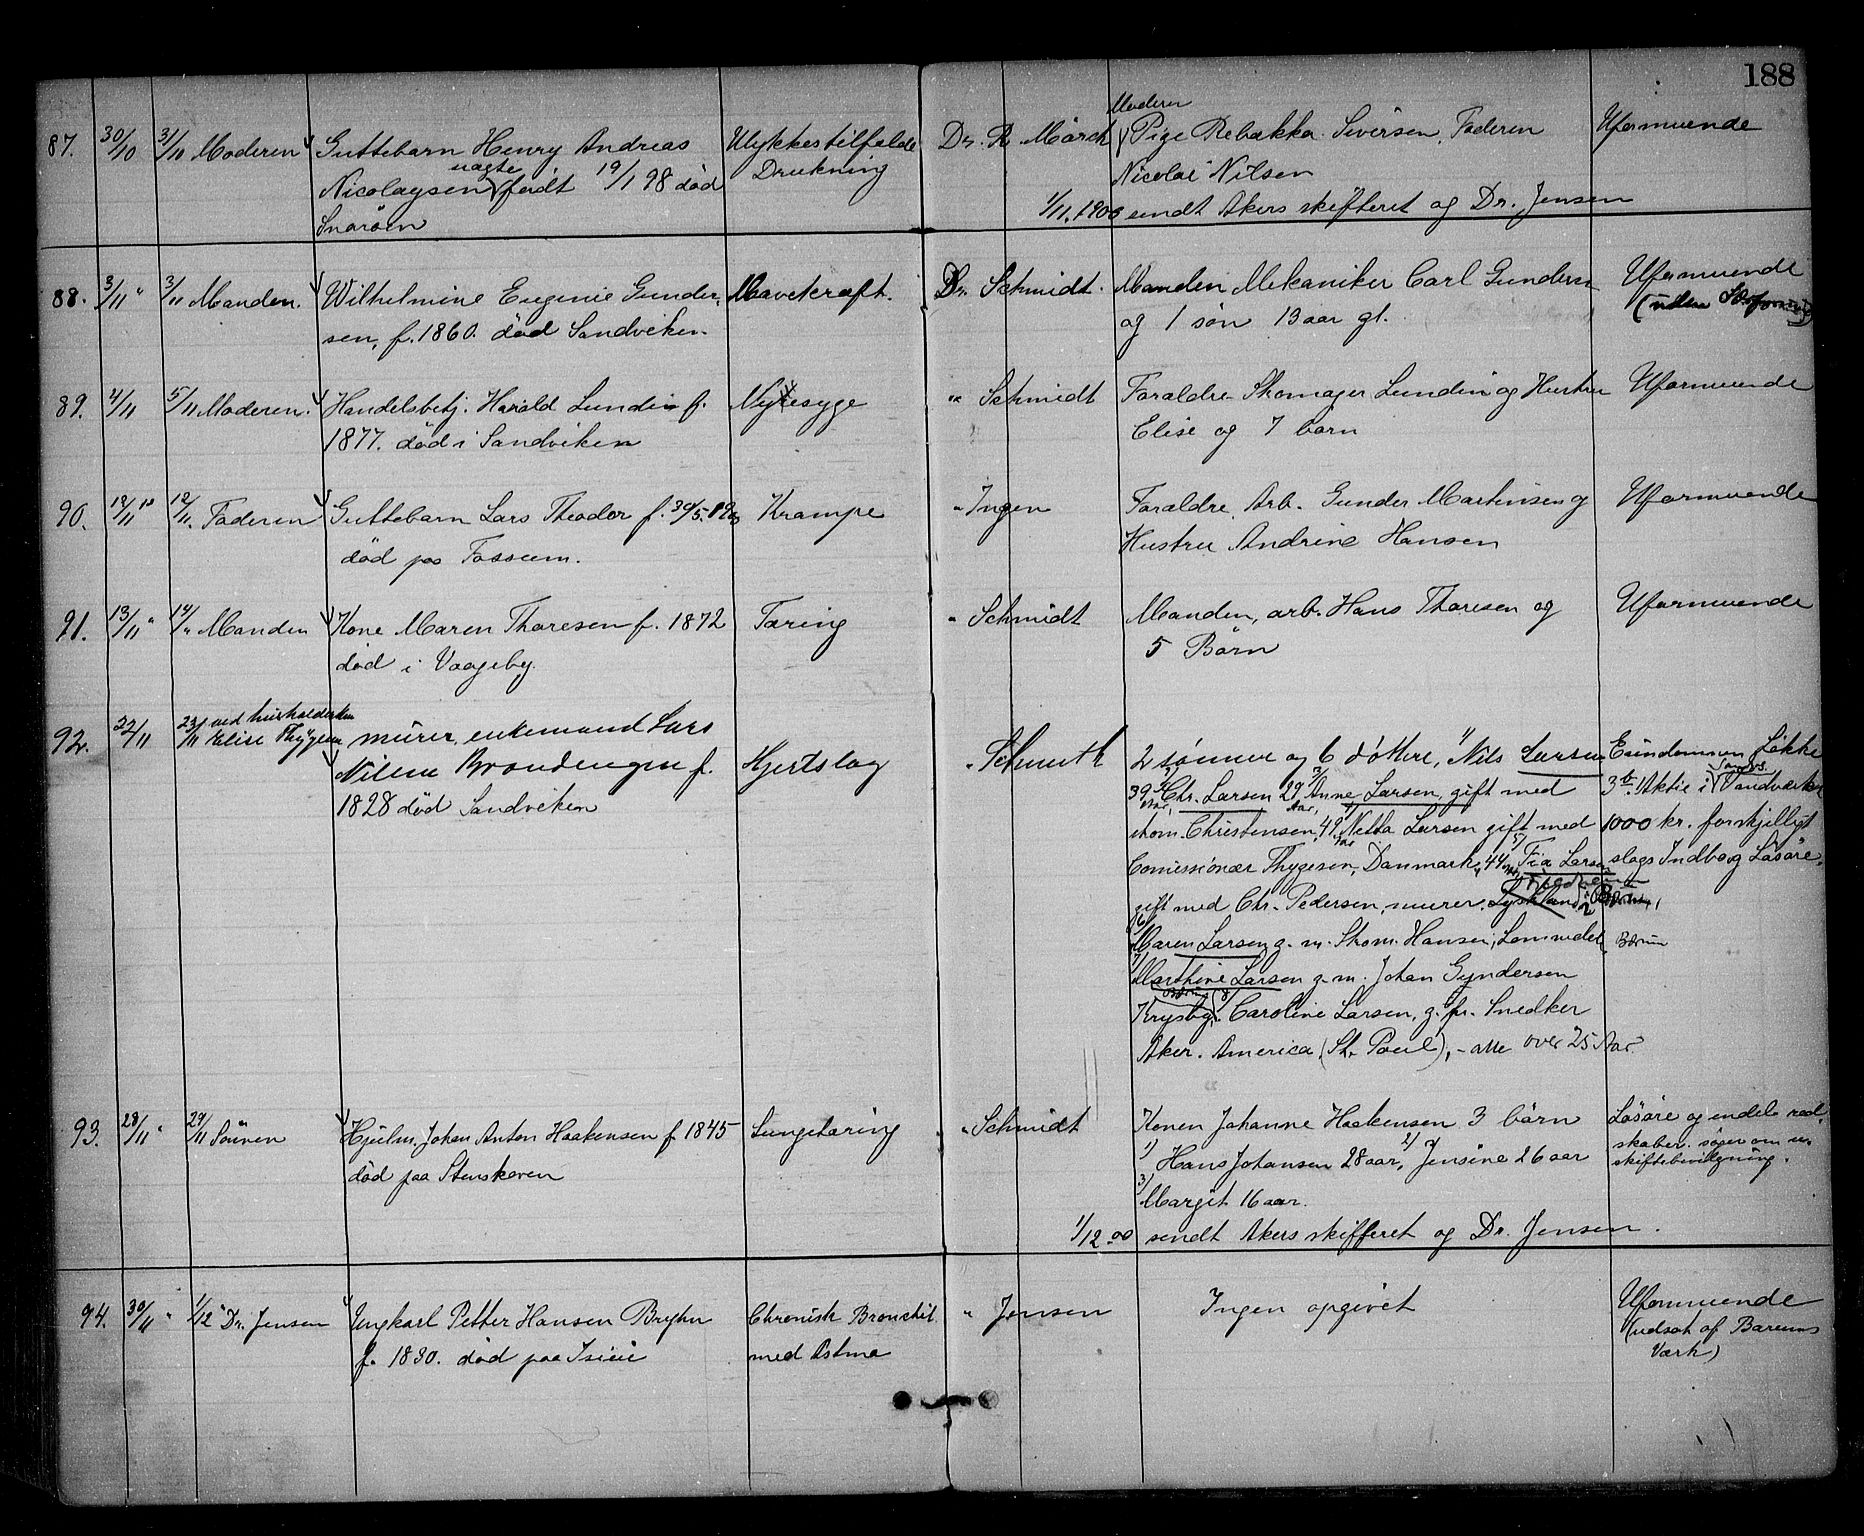 188
87. 30/10 31/10 Moderen Guttebarn Henry Andreas Ulykkestilfælde Dr. R. Mörch Moderen Pige Rebækka Seversen, Faderen Uformuende
Nicolaysen uægte født 19/1 98 död Drukning Nicolai Nilsen
Snaröen 1/11. 1900 sendt Akers skifteret og Dr. Jensen
88. 3/11 " 3/11 Manden. Wilhelmine Eugenie Gunder- Mavekræft. Dr. Schmidt. Manden Mekaniker Carl Gundersen Uformuende
sen, f. 1860. död Sandviken. og 1 sön 13 aar gl. (uden
89. 4/11 5/11 Moderen. Handelsbetj. Harald Lundin f. Nyresyge " Schmidt Forældre Skomager Lundin og Hustru Uformuende
1877. död i Sandviken Elise og 7 børn
90. 12/11 12/11. Faderen Guttebarn Lars Theodor f. 30/5. Krampe " Ingen Forældre Arb. Gunder Martinsen og Uformuende
död paa Fossum. Hustru Andrine Hansen
91. 13/11 " 14/" Manden Kone Maren Thoresen f. 1872 Tæring " Schmidt Manden, arb. Hans Thoresen og Uformuende
död i Vaageby. 5 Börn
92. 22/11 23/11 ved husholdersken Elise Thygesen murer, enkemand Lars
Nilsen Brændengen f. Hjertslag " Schmidt 2 sønner og 6 døttre, 1/ Nils Larsen Eiendommen Løkke
1828 död Sandviken 39 Aar, 2/ Chr. Larsen 29 Aar, 3/ Anne Larsen, gift med 3 Aktie i Sandv. Vandværk
skom. Christensen, 49 Aar, 4/ Netta Larsen gift med 1000 kr. forskjelligt
Comissionær Thygesen, Danmark, 44 Aar, 5/ Fia Larsen slags Indbo og Løsøre.
gift med Chr. Pedersen, murer, Tyskland
6/ Maren Larsen g. m. Skom. Hansen, Lommedal. Bærum
7/ Marthine Larsen g. m. Johan Gundersen
Krysby, Bærum 8/ Caroline Larsen, g. m. Snedker
Aker. America (St. Paul), - alle over 25 Aar.
93. 28/11 " 29/11 Sönnen Hjulm. Johan Anton Haakensen f. 1845 Lungetæring " Schmidt Konen Johanne Haakensen 3 börn Lösöre og endel red-
död paa Stenskoven 1/ Hans Johansen 28 aar, 2/ Jensine 26 aar skaber. söger om u-
3/ Margit 16 aar. skiftebevilgning.
1/12.00 sendt Akers skifteret og Dr. Jensen.
94. 30/11 " 1/12 " Dr. Jensen Ungkarl Petter Hansen Bryhn Chronisk Bronchit " Jensen Ingen opgivet Uformuende
f. 1830. död paa med Astma (udsat af Bærums
Værk)